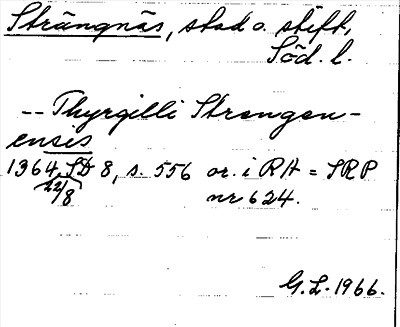 Strängnäs, stad o. stift,
Söd. l.
-- Thyrgilli Strengen-
ensis
1364 SD 8, s. 556 or. i RA = SRP
22/8 nr 624.
G.L. 1966.